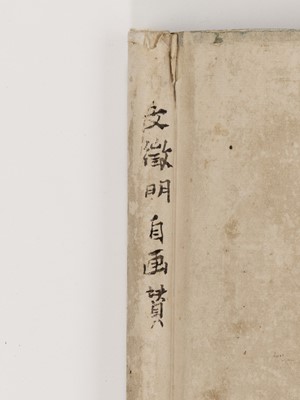 文徵明自画賛